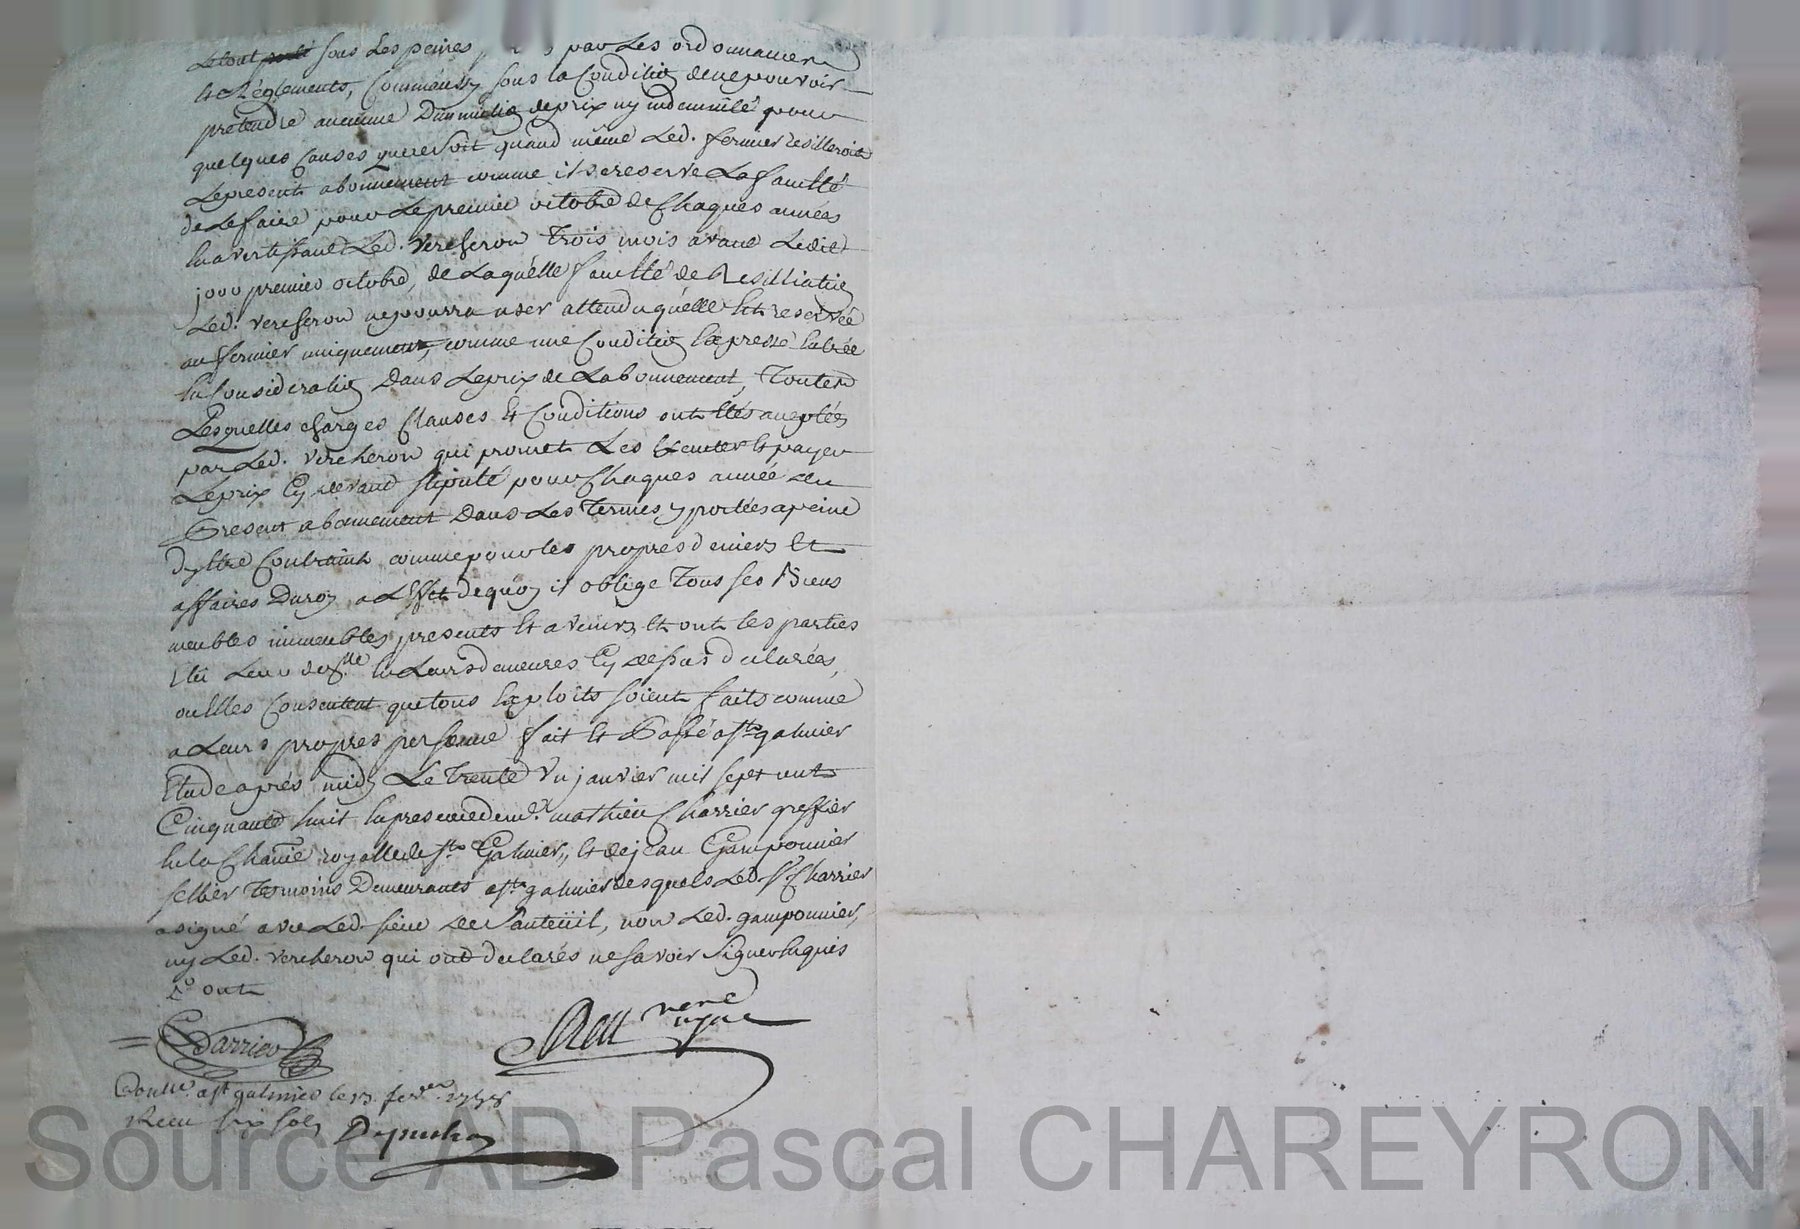 Le tout sous les peines par les ordonnances
et Réglements, Comm'aussy sous la Condition de ne pouvoir
pretendre aucunne Diminution de prix ny indemnité pour
quelques Causes que ce soit quand même led. fermier resilleroit
Le present abonnement comme il se reserve La faculté
de Le faire pour Le premier octobre de Chaques années
En avertissant Led. Vercheron Trois mois avant Ledit
jour premier octobre, de Laquélle faculté de Resilliation
Led. vercheron ne pourra user attendu quélle Est reservée
au fermier uniquement, comme une Condition Expresse Entrée
En Consideration Dans Le prix de Labonnement, Toutes
Lesquelles charges Clauses Et Conditions ont Etés aceptées
par Led. vercheron qui promet Les Executer Et payer
Le prix Cy devant stipulé pour Chaques année du
Present abonnement Dans Les Termes y portées a peine
D'y Etre Contraint comme pour les propres deniers Et
affaires Du roy a L'Effet de quoy il oblige Tous ses Biens
meubles immeubles presents Et avenirs Et ont les parties
Elû Leur domlle En Leurs demeures Cy dessus declarées,
ou Elles Consentent que tous Exploits soient faits comme
a Leurs propres personne fait Et Passé a St galmier
Etude aprés midy Le Trente Un janvier mil sept cents
Cinquante huit En presence de me. mathieu Charrier greffier
En la Chatnie royalle de St Galmier, Et de jean Gamponnier
sellier Temoins Demeurants a St galmier desquels Led. Sr. Charrier
a signé avec Led. sieur De Santeüil, non Led. gamponnier,
ny Led. vercheron qui ont declarés ne savoir Signer Enquis
Eo ont
Charrier
Contlé. a St galmier le 13. fever. 1758
Recu six sols